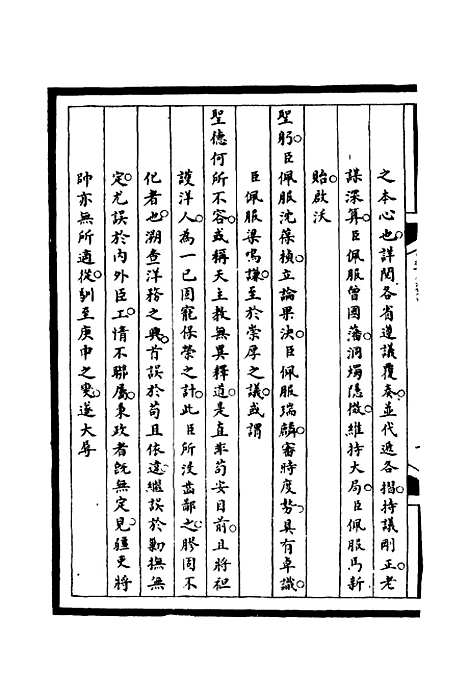 之本心也詳閱各省遵議覆奏並代遞各摺持議剛正老
謀深算臣佩服曾國藩洞燭隱微維持大局臣佩服馬新
貽啟沃
聖躬臣佩服沈葆楨立論果決臣佩服瑞麟審時度勢具有卓識
臣佩服梁鳴謙至於崇厚之議或謂
聖德何所不容或稱天主教無異釋道是直非苟安目前且將袒
護洋人為一己固寵保榮之計此臣所沒齒鄙之膠固不
化者也溯查洋務之興首誤於苟且依違繼誤於勦撫無
定尤誤於內外臣工情不聯屬秉政者既無定見疆吏將
帥亦無所適從馴至庚申之變遂大辱